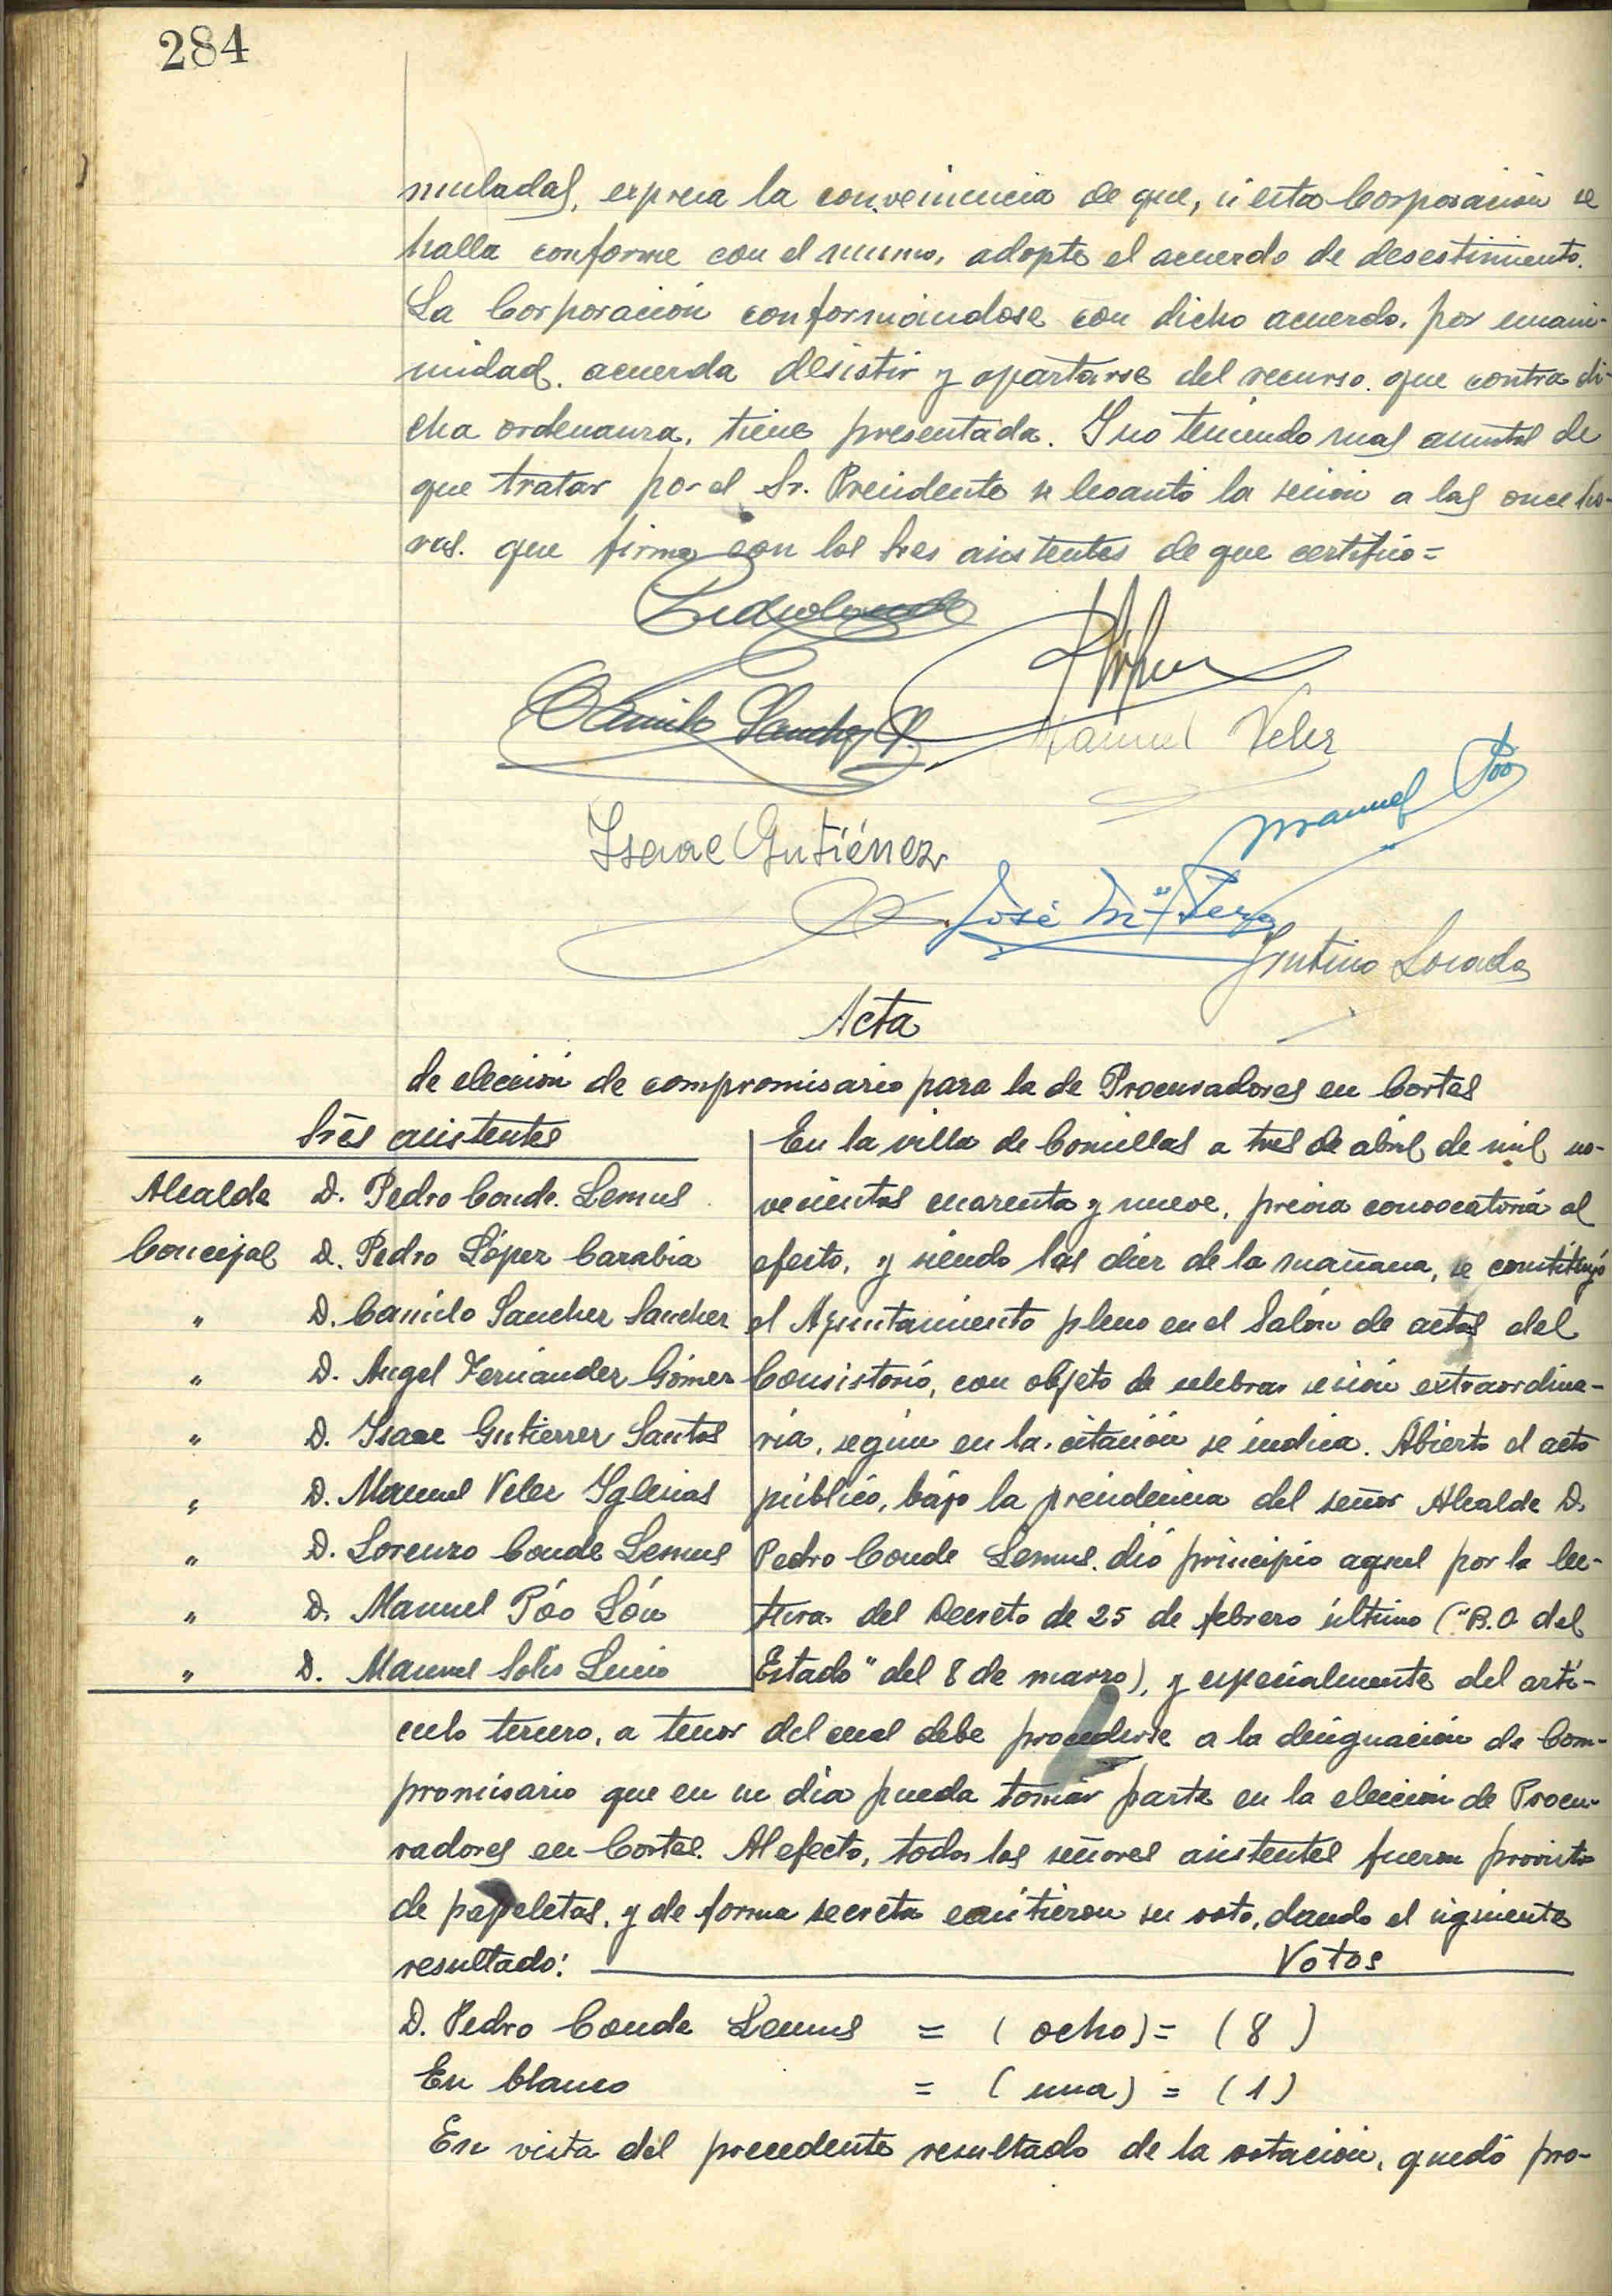 284
muladas, expresa la conveniencia de que, si esta Corporación se
halla conforme con el mismo, adopte el acuerdo de desestimiento.
La Corporación conformándose con dicho acuerdo, por unani-
midad, acuerda desistir y apartarse del recurso que contra di-
cha ordenanza, tiene presentada. Y no teniendo mas asuntos de
que tratar por el Sr. Presidente se levantó la sesión a las once ho-
ras. que firma con los Sres asistentes de que certifico=
Camilo Sanchez S.
Manuel Velez
Manuel Póo
Isaac Gutiérrez
José Mª
Acta
de elección de compromisario para la de Procuradores en Cortes
Sres asistentes
Alcalde D. Pedro Conde Lemus
Concejal D. Pedro López Carabia
" D. Camilo Sanchez Sanchez
" D. Angel Fernández Gómez
" D. Isaac Gutierrez Santos
" D. Manuel Velez Yglesias
" D. Lorenzo Conde Lemus
" D. Manuel Póo Lón
" D. Manuel Solís Lucio
En la villa de Comillas a tres de abril de mil no-
vecientos cuarenta y nueve, previa convocatoria al
efecto, y siendo las diez de la mañana, se constituyó
el Ayuntamiento pleno en el Salón de actos del
Consistorio, con objeto de celebrar sesión extraordina-
ria, según en la citación se indica. Abierto el acto
público, bajo la presidencia del señor Alcalde D.
Pedro Conde Lemus, dió principio aquel por la lec-
tura del Decreto de 25 de febrero último ("B.O. del
Estado" del 8 de marzo), y especialmente del artí-
culo tercero, a tenor del cual debe procederse a la designación de Com-
promisario que en su día pueda tomar parte en la elección de Procu-
radores en Cortes. Al efecto, todos los señores asistentes fueron provistos
de papeletas, y de forma secreta emitieron su voto, dando el siguiente
resultado: Votos
D. Pedro Conde Lemus = (ocho) = (8)
En blanco = (una) = (1)
En vista del precedente resultado de la votación, quedó pro-